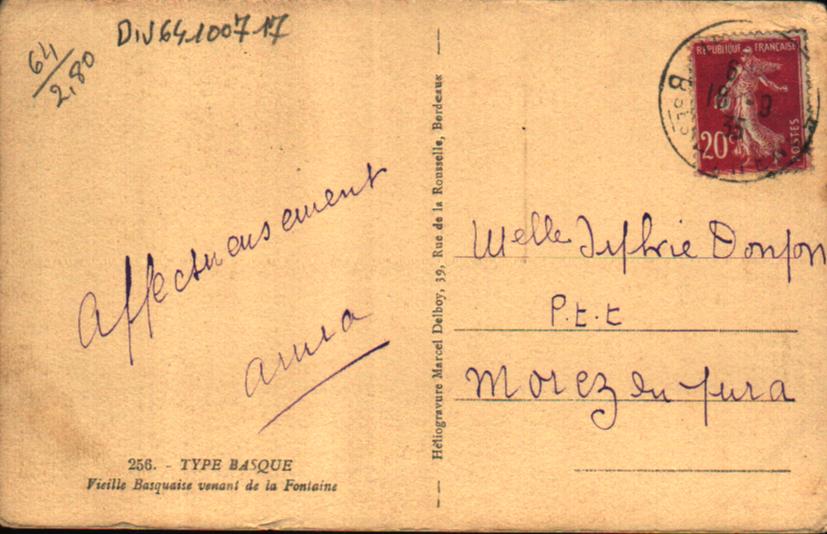 64/2,80
DIV64100717
Affectueusement
anna
256. - TYPE BASQUE
Vieille Basquaise venant de la Fontaine
Héliogravure Marcel Delboy, 39, Rue de la Rousselle, Bordeaux
REPUBLIQUE FRANÇAISE
20c
POSTES
18 -9
35
Melle Sylvie Donjon
P.t.t
Morez du Jura